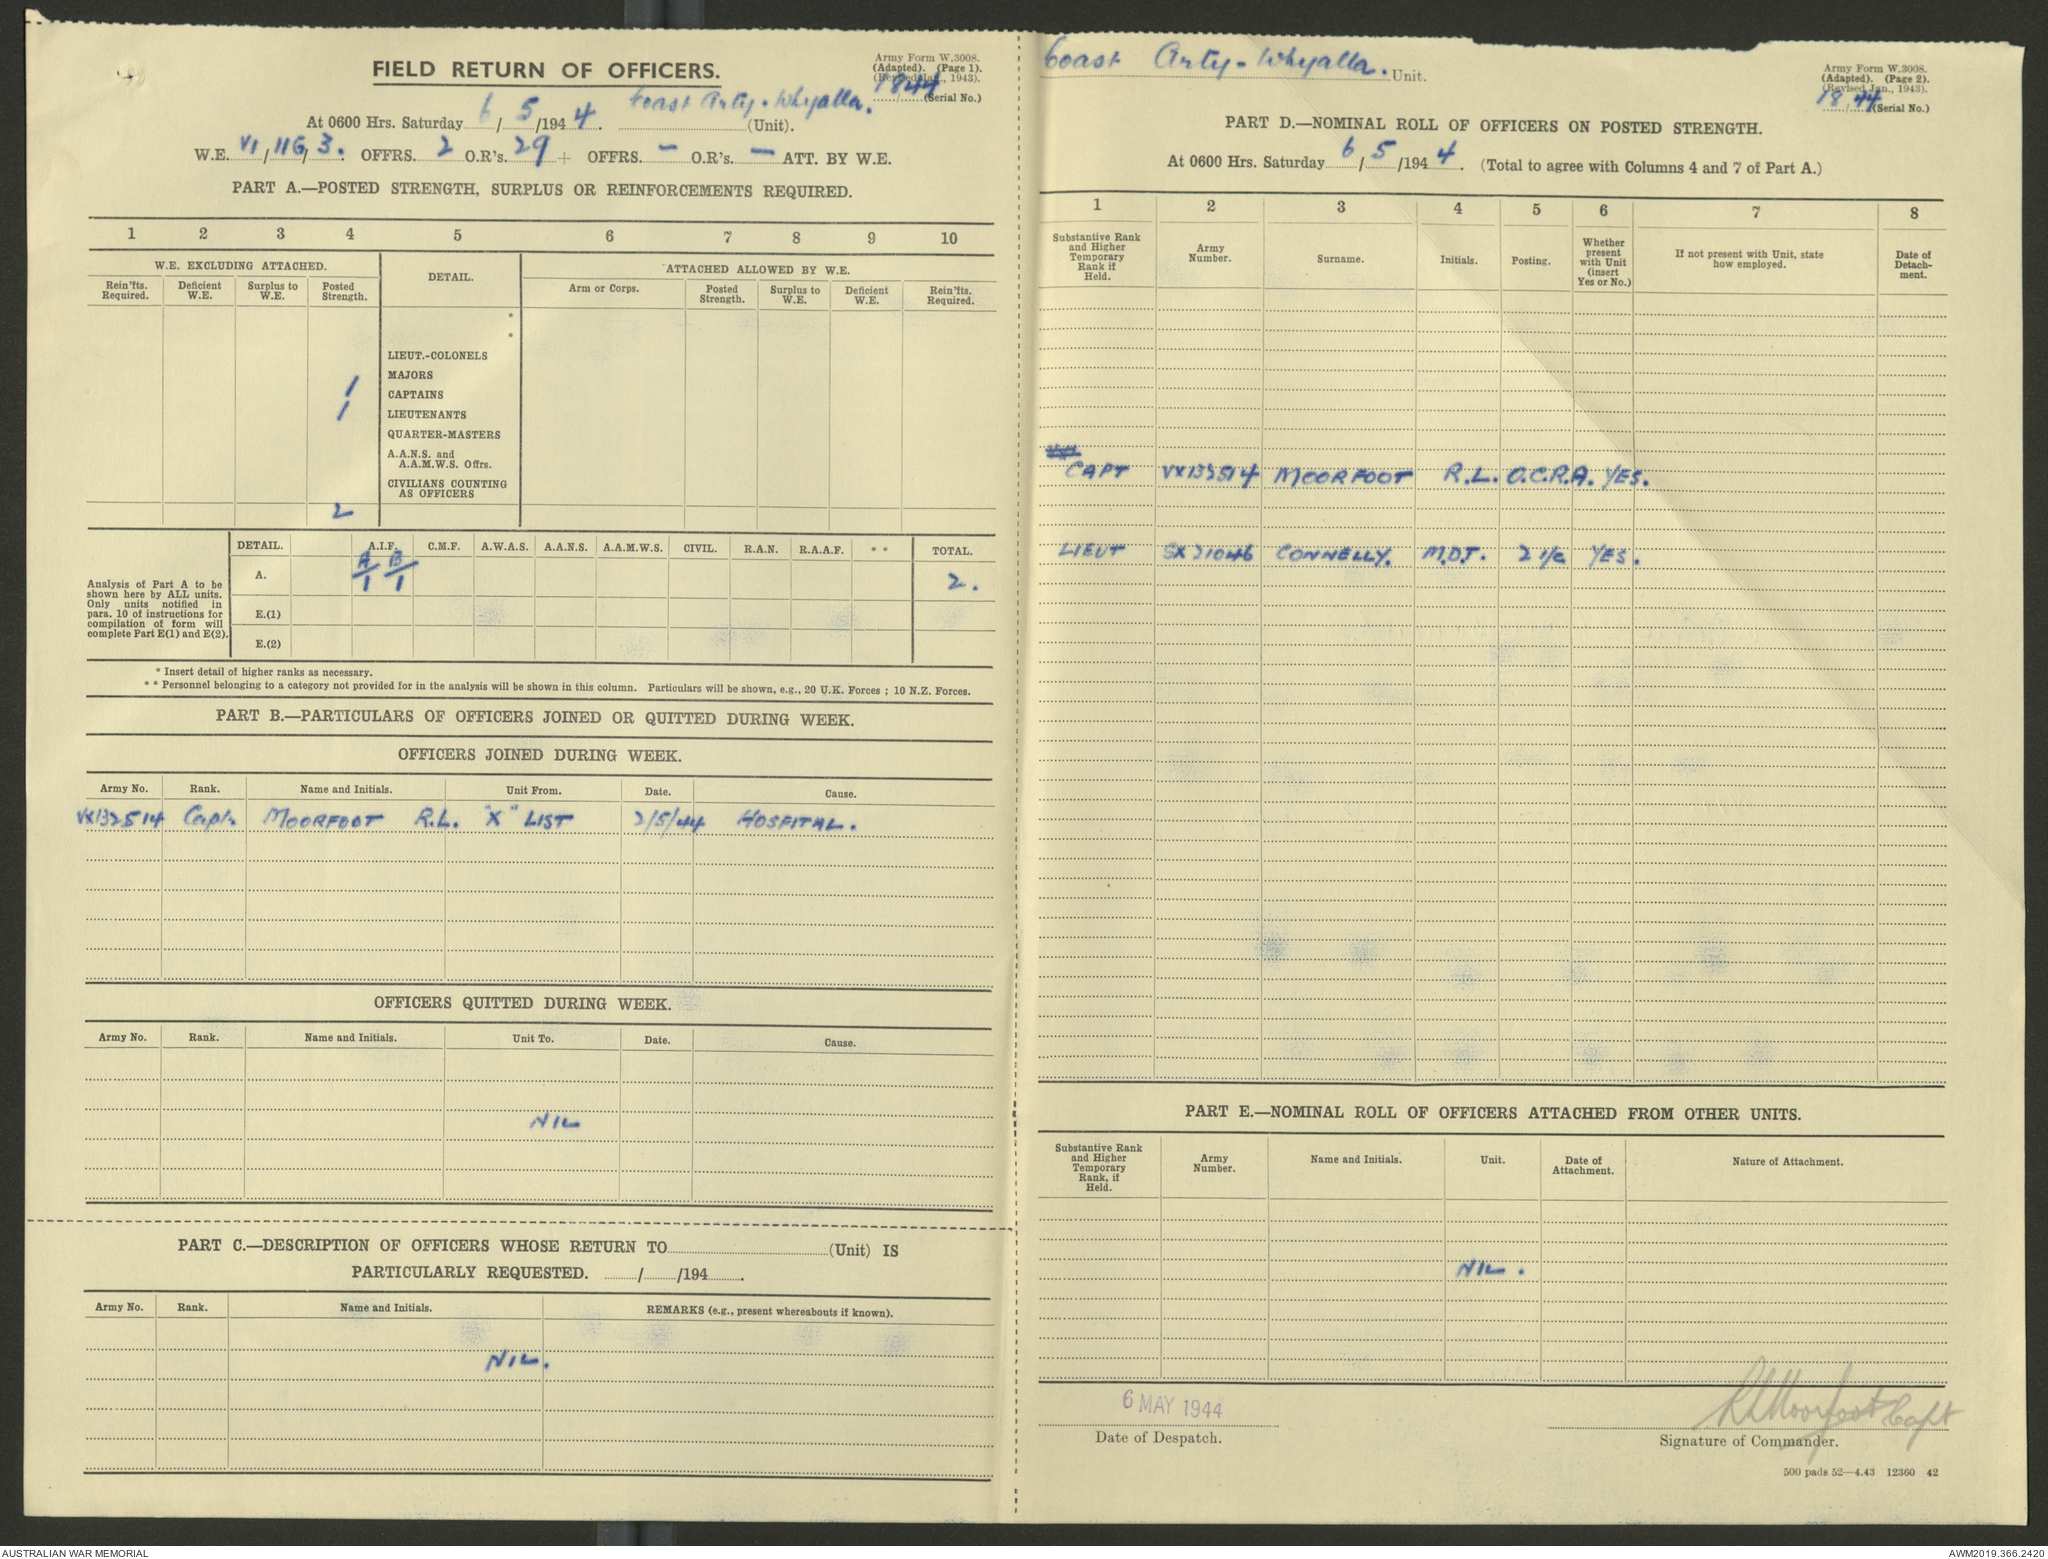 FIELD RETURN OF OFFICERS.
Army Form W.3008.
(Adapted). (Page 1).
(Revised Jan., 1943).
18/44 (Serial No.)
At 0600 Hrs. Saturday 6/5/1944. Coast Arty. Whyalla. (Unit).
W.E. VI/116/3. OFFRS. 2 O.R's. 29 + OFFRS. — O.R's. — ATT. BY W.E.
PART A.—POSTED STRENGTH, SURPLUS OR REINFORCEMENTS REQUIRED.
1 2 3 4 5 6 7 8 9 10
W.E. EXCLUDING ATTACHED. DETAIL. ATTACHED ALLOWED BY W.E.
Rein'fts. Required. Deficient W.E. Surplus to W.E. Posted Strength. Arm or Corps. Posted Strength. Surplus to W.E. Deficient W.E. Rein'fts. Required.
*
*
LIEUT.-COLONELS
MAJORS
1 CAPTAINS
1 LIEUTENANTS
QUARTER-MASTERS
A.A.N.S. and
A.A.M.W.S. Offrs.
CIVILIANS COUNTING
AS OFFICERS
2
DETAIL. A.I.F. C.M.F. A.W.A.S. A.A.N.S. A.A.M.W.S. CIVIL. R.A.N. R.A.A.F. * * TOTAL.
A. A/1 B/1 2.
E.(1)
E.(2)
Analysis of Part A to be
shown here by ALL units.
Only units notified in
para. 10 of instructions for
compilation of form will
complete Part E(1) and E(2).
* Insert detail of higher ranks as necessary.
* * Personnel belonging to a category not provided for in the analysis will be shown in this column. Particulars will be shown, e.g., 20 U.K. Forces ; 10 N.Z. Forces.
PART B.—PARTICULARS OF OFFICERS JOINED OR QUITTED DURING WEEK.
OFFICERS JOINED DURING WEEK.
Army No. Rank. Name and Initials. Unit From. Date. Cause.
VX132514 Capt. MOORFOOT R.L. "X" LIST 2/5/44 HOSPITAL.
OFFICERS QUITTED DURING WEEK.
Army No. Rank. Name and Initials. Unit To. Date. Cause.
NIL
PART C.—DESCRIPTION OF OFFICERS WHOSE RETURN TO (Unit) IS
PARTICULARLY REQUESTED. / /194 .
Army No. Rank. Name and Initials. REMARKS (e.g., present whereabouts if known).
NIL.
Coast Arty. Whyalla. Unit.
Army Form W.3008.
(Adapted). (Page 2).
(Revised Jan., 1943).
18/44 (Serial No.)
PART D.—NOMINAL ROLL OF OFFICERS ON POSTED STRENGTH.
At 0600 Hrs. Saturday 6/5/1944. (Total to agree with Columns 4 and 7 of Part A.)
1 2 3 4 5 6 7 8
Substantive Rank and Higher Temporary Rank if Held. Army Number. Surname. Initials. Posting. Whether present with Unit (insert Yes or No.) If not present with Unit, state how employed. Date of Detach- ment.
CAPT VX132514 MOORFOOT R.L. O.C.R.A. YES.
LIEUT SX21046 CONNELLY. M.D.J. 2 i/c YES.
PART E.—NOMINAL ROLL OF OFFICERS ATTACHED FROM OTHER UNITS.
Substantive Rank and Higher Temporary Rank, if Held. Army Number. Name and Initials. Unit. Date of Attachment. Nature of Attachment.
NIL.
6 MAY 1944
Date of Despatch.
RLMoorfoot Capt
Signature of Commander.
500 pads 52—4.43 12360 42
AUSTRALIAN WAR MEMORIAL
AWM2019.366.2420